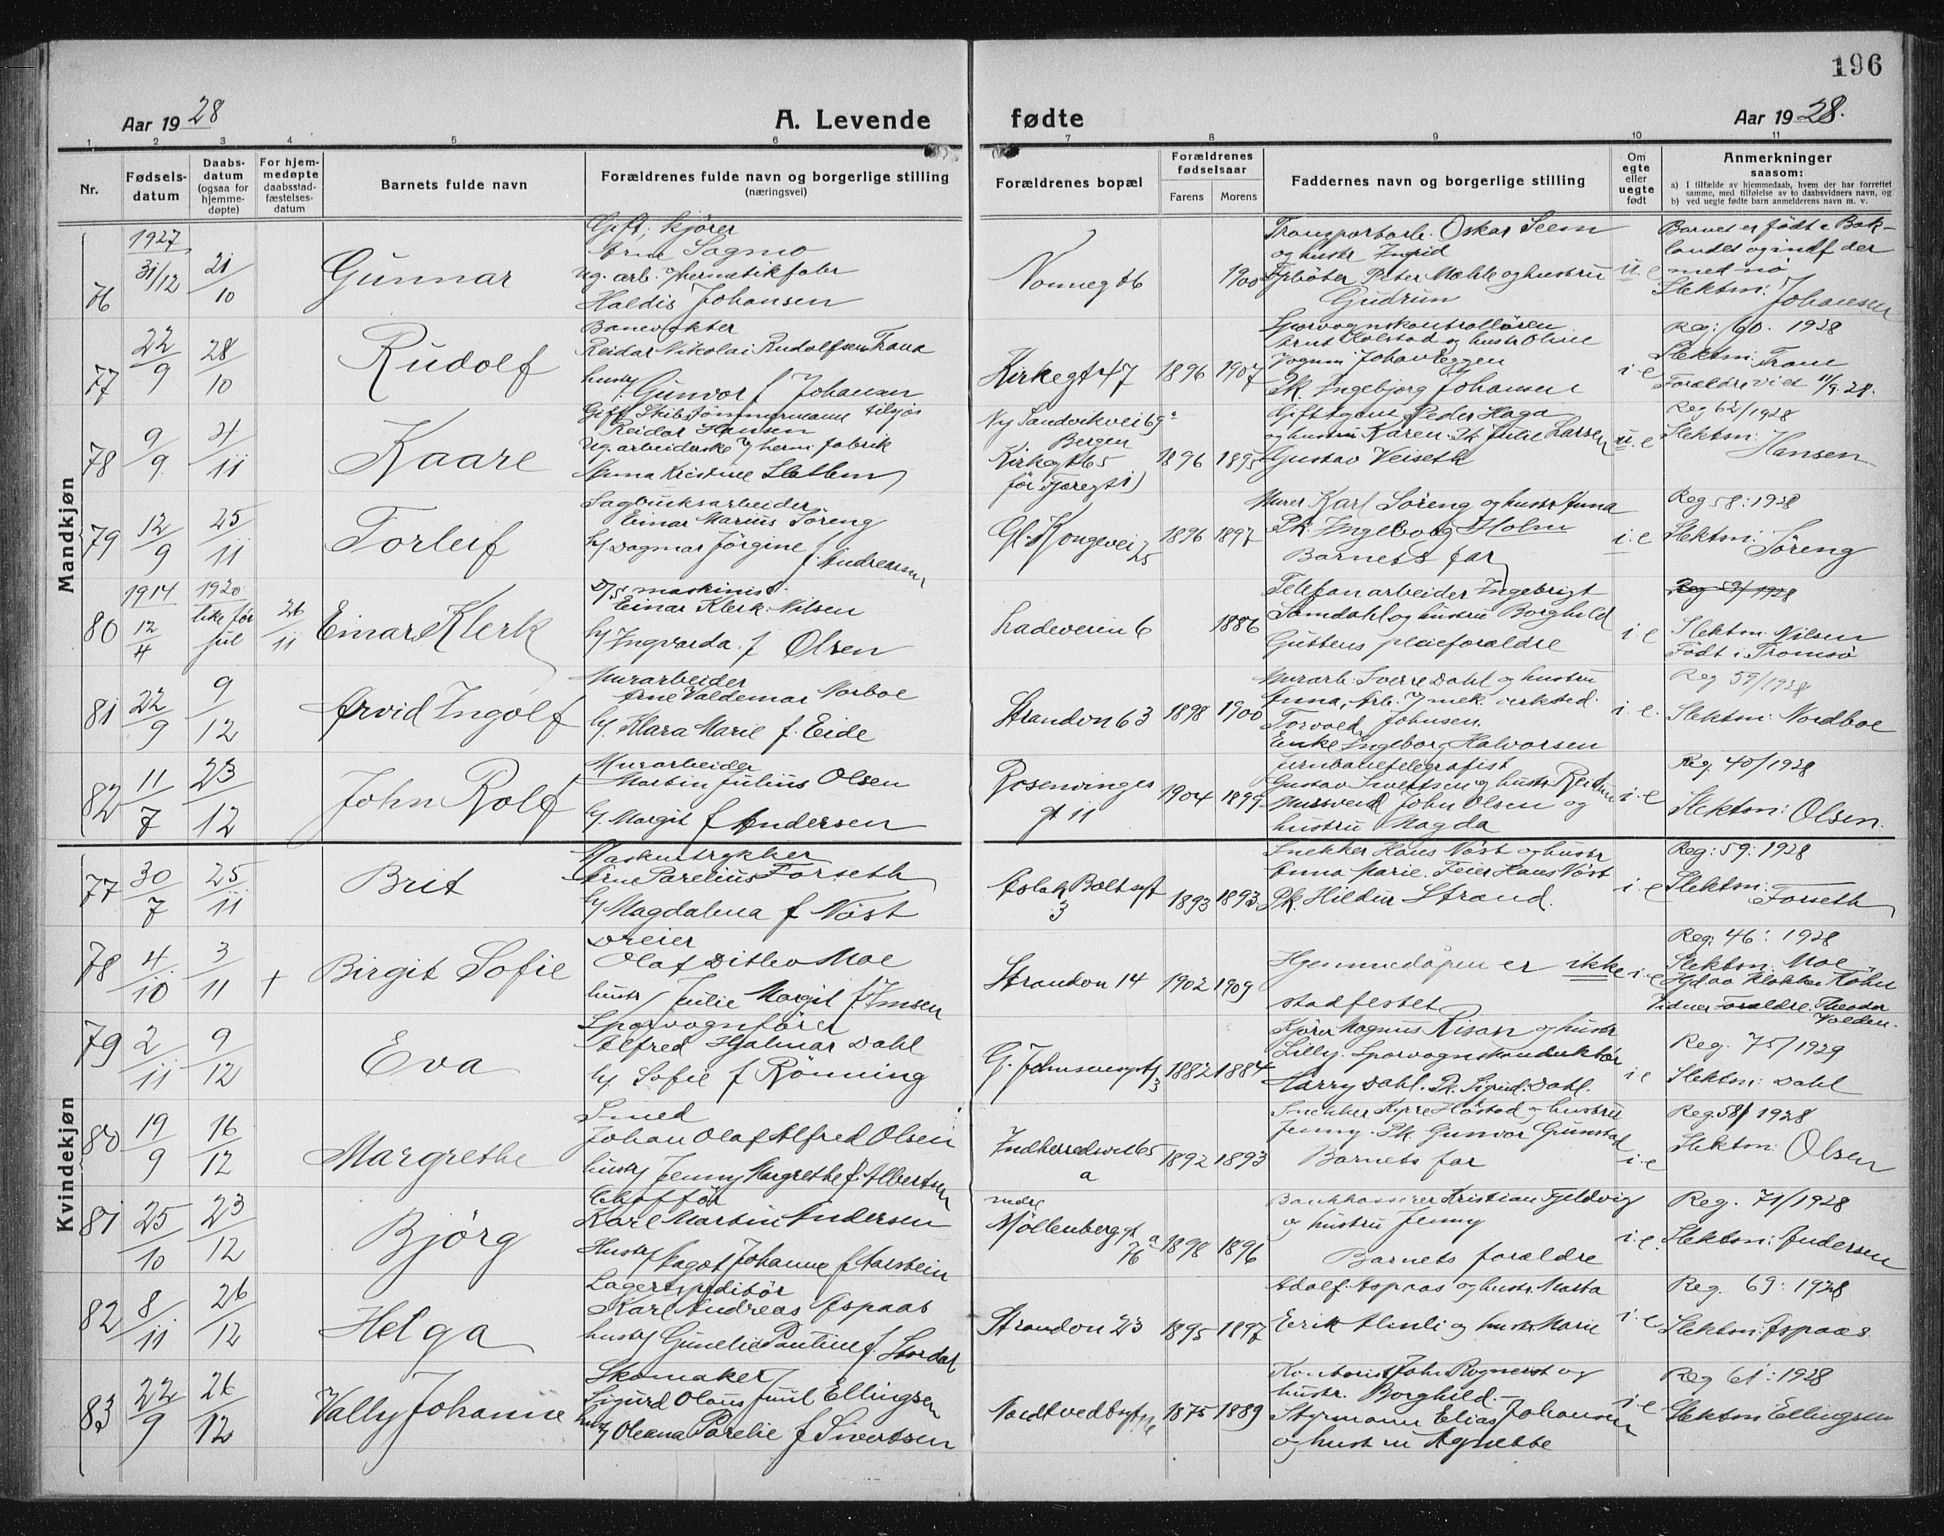 196
Aar 1928
A. Levende
fødte
Aar 1928.
1 2 3 4 5 6 7 8 9 10 11
Nr.
Fødsels-
datum
Daabs-
datum
(ogsaa for
hjemme-
døpte)
For hjem-
medøpte
daabsstad-
fæstelses-
datum
Barnets fulde navn
Forældrenes fulde navn og borgerlige stilling
(næringsvei)
Forældrenes bopæl
Forældrenes
fødselsaar
Farens
Morens
Faddernes navn og borgerlige stilling
Om
egte
eller
uegte
født
Anmerkninger
saasom:
a) I tilfælde av hjemmedaab, hvem der har forrettet
samme, med tilføielse av to daabsvidners navn, og
b) ved uegte fødte barn anmelderens navn m. v.
Mandkjøn
76
1927
31/12
21/10
Gunnar
Gift, kjører
Arne Sagmo
ug. arb. hermetikfabr
Haldis Johansen
1900
Transportarb. Oskar Seem
og hustr Ingrid
Peter Mæhle og hustru
Gudrun
u. e
Barnet er født i Bak-
landet og indf der
med no
Slektsn: Johansen
77
22/9
28/10
Rudolf
Banevokter
Reidar Nikolai Rudolfsen Trana
hustr Gunvor f Johansen
Kirkegt 47
1896
1907
Sporvognskontrolløren
Olstad og hustr Oline
Johan Eggen
Pk. Ingebjorg Johansen
i. e
Reg: 60. 1928
Slektsn: Trane
Foraldre vied 11/9. 28.
78
9/9
4/11
Kaare
Gift Skibstømmermann tilsjøs
Reidar Hansen
ug. arbeiderske i herm. fabrik
Anna Kristine Slatlem
Ny Sandvikvei 69a
Bergen
Kirkegt 65
1896
1895
Peder Haga
og hustru Karen. Julie Larsen
Gustav Veiseth
u. e
Reg 62/1928
Slektsn:
Hansen
79
12/9
25/11
Torleif
Sagbruksarbeider
Einar Marius Søreng
h/ Dagmar Jørgine f. Andreassen
Gl. Kongevei 25
1896
1897
Murer Karl Søreng og hustr Anna
Pk. Ingeborg Holm
Barnets far
i. e
Reg 58: 1928
Slektsn:
Søreng
80
1914
12/4
1920
like før
jul
26/11
Einar Klerk
D/S maskinist
Einar Klerk Nilsen
h/ Ingvarda f Olsen
Ladeveien 6
1886
Telefonarbeider Ingebrigt
Samdahl og hustru Borghild
Guttens pleieforaldre
i. e
Reg 59/1928
Slektsn: Nilsen
Født i Tromsø
81
22/9
9/12
Arvid Ingolf
Murarbeider
Arne Valdemar Norboe
h/ Klara Marie f. Eide
Strandvn 63
1898
1900
Murarb. Sverre Dahl og hustru
Anna, Arb. i mek. verksted
Torvald Johnsen.
Enke Ingebor Halvorsen
i. e.
Reg 59/1928
Slektsn: Nordboe
82
11/7
23/12
John Rolf
Murarbeider
Martin Julius Olsen
h/ Margit f Andersen
Rosenvinges
gt 11
1904
1899
Jernbanetelegrafist
Gustav Sivertsen og hustr Reidun
Murersvend John Olsen og
hustru Magda
i. e
Reg. 40/1928
Slektsn: Olsen.
Kvindekjøn
77
30/7
25/11
Brit
Maskintrykker
Arne Parelius Forseth
h/ Magdalena f Nøst
Aslak Boltsgt
3
1893
1893.
Snekker Hans Nøst og hustr
Anna Marie. Feier Hans Nøst
Pk. Hildur Strand.
i. e
Reg: 59: 1928
Slektsn:
Forseth
78
4/10
3/11
+
Birgit Sofie
Dreier
Olaf Ditlev Moe
hustr/ Julie Margit f Jensen
Strandvn 14
1902
1909
Hjemmedåpen er ikke
stadfestet
i. e
Reg. 46: 1928
Slektsn: Moe
Hjd av klokker Köhn
Vidner Foraldre. Theodor
Volden.
79
2/11
9/12
Eva
Sporvognfører
Alfred Hjalmar Dahl
h/ Sofie f Rønning
1882
1884
Kjører Magnus Risan og hustr
Lilly. Sporvognskonduktør
Harry Dahl. Pk. Sigrid Dahl.
i. e
Reg. 75/1929
Slektsn: Dahl
80
19/9
16/12
Margrethe
Smed
Johan Olaf Alfred Olsen
hustr/ Jenny Margrethe f. Albertsen
Indherredsvei 65
a
1892
1893
Snekker Kyrre Høstad og hustru
Jenny. Pk. Gunvor Grinstad
Barnets far
i. e
Reg. 58/1928
Slektsn: Olsen
81
25/10
23/12
Bjørg
Chaffør
Karl Martin Andersen
Hustr/ Aagot Johanne f Aarstein
nedre
Møllenberggt
76a
1898
1896
Bankkasserer Kristian Fjeldvig
og hustru Jenny
Barnets foraldre
i. e.
Reg. 71/1928
Slektsn: Andersen
82
8/11
26/12
Helga
Lagerexpeditør
Karl Andreas Aspaas
hustr/ Gunelie Pauline f. Stordal
Strandvn 23
1895
1897
Adolf Aspaas og hustr. Marta
Erik Alinli og hustr. Marie
i. e
Reg. 69: 1928
Slektsn: Aspaas.
83
22/9
26/12
Vally Johanne
Skomaker
Sigurd Olaus Juul Ellingsen
hust/ Oleana Parelie f Sivertsen
1875
1889
Kontorist John Rognerst og
hustr. Borghild.
Styrmann Elias Johansen
og hustru Agnette
i. e
Reg 61: 1928
Slektsn: Ellingsen